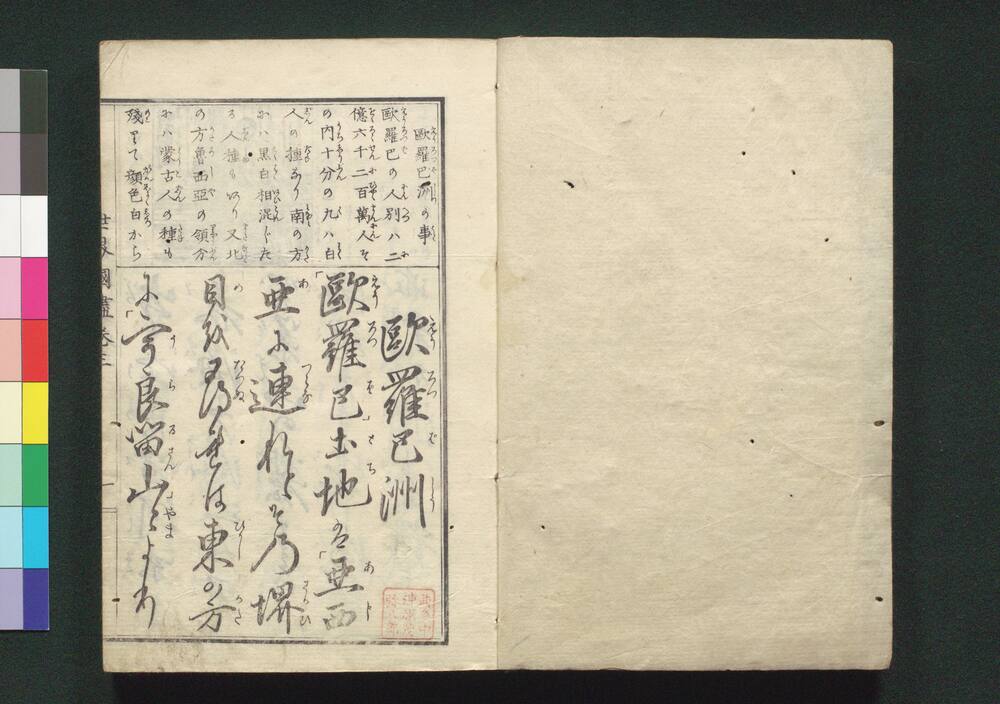 歐羅巴洲の事
歐羅巴の人別ハ二
億六千二百萬人そ
の内十分の九ハ白
人の種なり南の方
にハ黒白相混じた
る人種もあり又北
の方魯西亞の領分
にハ蒙古人の種も
殘りて顔色白から
歐羅巴洲
歐羅巴土地は亜西
亜に連れどその堺
目を尋れは東の方
に宇良留山
世界國盡 卷三